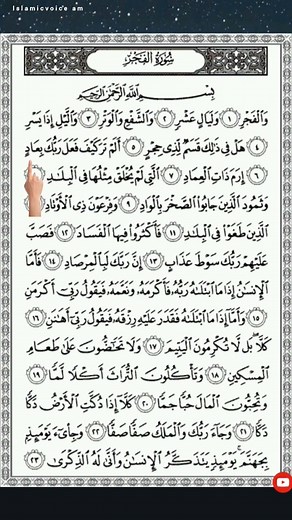 Islamicvoice am
سُورَةُ الفَجْرِ
بِسْمِ اللَّهِ الرَّحْمَٰنِ الرَّحِيمِ
وَالْفَجْرِ ١ وَلَيَالٍ عَشْرٍ ٢ وَالشَّفْعِ وَالْوَتْرِ ٣ وَاللَّيْلِ إِذَا يَسْرِ
٤ هَلْ فِي ذَٰلِكَ قَسَمٌ لِّذِي حِجْرٍ ٥ أَلَمْ تَرَ كَيْفَ فَعَلَ رَبُّكَ بِعَادٍ
٦ إِرَمَ ذَاتِ الْعِمَادِ ٧ الَّتِي لَمْ يُخْلَقْ مِثْلُهَا فِي الْبِلَادِ ٨
وَثَمُودَ الَّذِينَ جَابُوا الصَّخْرَ بِالْوَادِ ٩ وَفِرْعَوْنَ ذِي الْأَوْتَادِ ١٠
الَّذِينَ طَغَوْا فِي الْبِلَادِ ١١ فَأَكْثَرُوا فِيهَا الْفَسَادَ ١٢ فَصَبَّ
عَلَيْهِمْ رَبُّكَ سَوْطَ عَذَابٍ ١٣ إِنَّ رَبَّكَ لَبِالْمِرْصَادِ ١٤ فَأَمَّا
الْإِنسَانُ إِذَا مَا ابْتَلَاهُ رَبُّهُ فَأَكْرَمَهُ وَنَعَّمَهُ فَيَقُولُ رَبِّي أَكْرَمَنِ
١٥ وَأَمَّا إِذَا مَا ابْتَلَاهُ فَقَدَرَ عَلَيْهِ رِزْقَهُ فَيَقُولُ رَبِّي أَهَانَنِ ١٦
كَلَّا بَل لَّا تُكْرِمُونَ الْيَتِيمَ ١٧ وَلَا تَحَاضُّونَ عَلَىٰ طَعَامِ
الْمِسْكِينِ ١٨ وَتَأْكُلُونَ التُّرَاثَ أَكْلًا لَّمًّا ١٩
وَتُحِبُّونَ الْمَالَ حُبًّا جَمًّا ٢٠ كَلَّا إِذَا دُكَّتِ الْأَرْضُ دَكًّا
دَكًّا ٢١ وَجَاءَ رَبُّكَ وَالْمَلَكُ صَفًّا صَفًّا ٢٢ وَجِيءَ يَوْمَئِذٍ
بِجَهَنَّمَ يَوْمَئِذٍ يَتَذَكَّرُ الْإِنسَانُ وَأَنَّىٰ لَهُ الذِّكْرَىٰ ٢٣